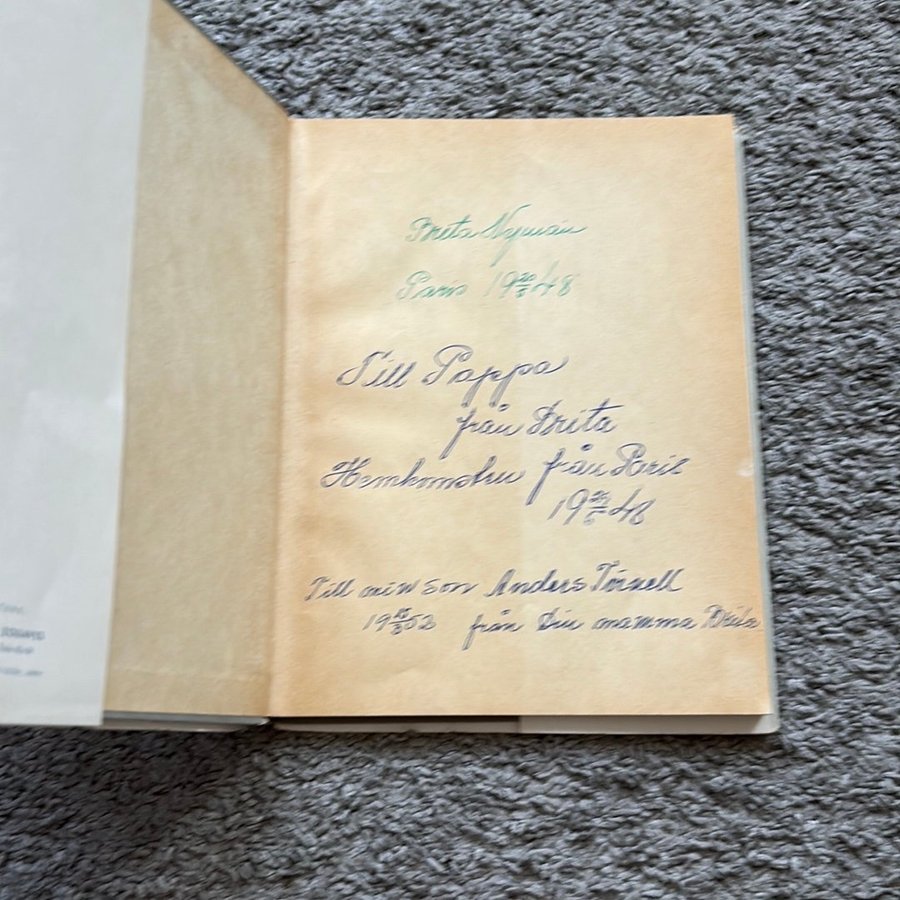 Brita Nyman
Paris 19 48
Till Pappa
från Brita
Hemkomsten från Paris
19 48
Till min son Anders Törnell
19 52 från Din mamma Brita